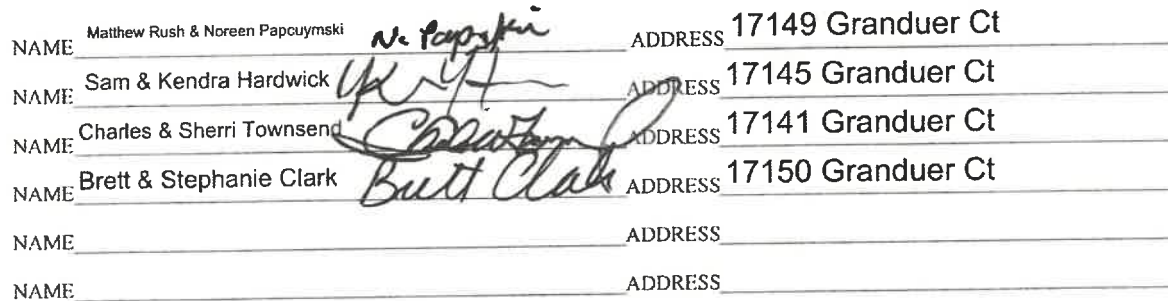 NAME Matthew Rush & Noreen Papcuymski N. Papcuymski ADDRESS 17149 Granduer Ct
NAME Sam & Kendra Hardwick ADDRESS 17145 Granduer Ct
NAME Charles & Sherri Townsend ADDRESS 17141 Granduer Ct
NAME Brett & Stephanie Clark Brett Clark ADDRESS 17150 Granduer Ct
NAME ADDRESS
NAME ADDRESS